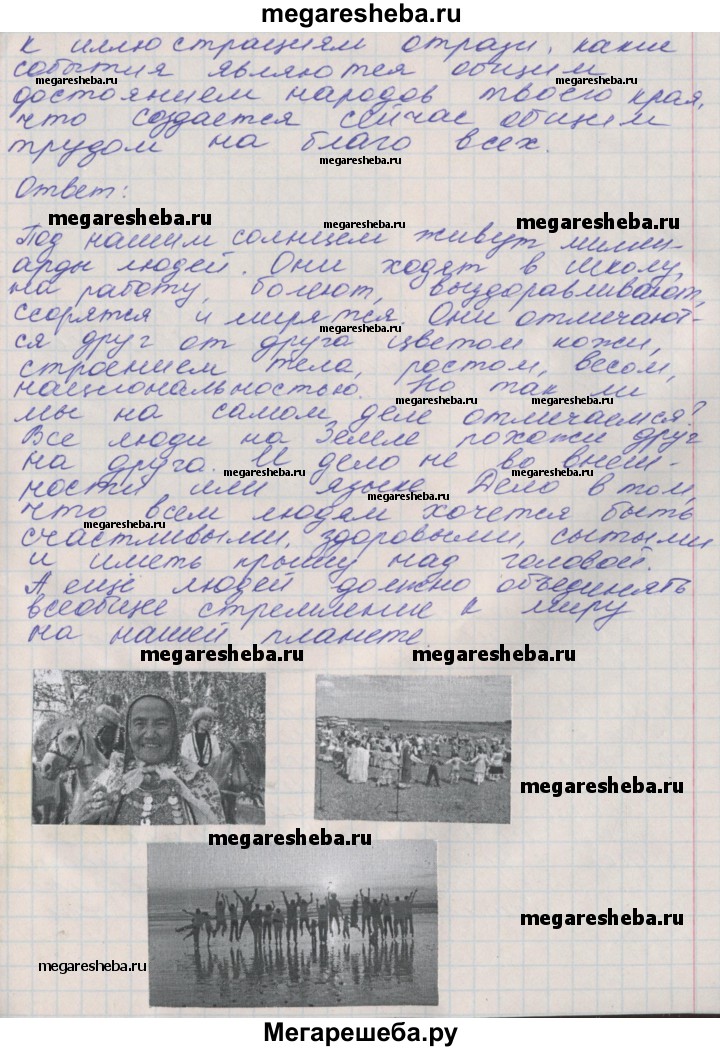 megaresheba.ru
к иллюстрациям отрази, какие
события являются общим
megaresheba.ru
megaresheba.ru
достоянием народов твоего края,
что создается сейчас общим
трудом на благо всех.
megaresheba.ru
Ответ:
megaresheba.ru
megaresheba.ru
megaresheba.ru
Под нашим солнцем живут милли-
арды людей. Они ходят в школу,
на работу, болеют, выздоравливают,
ссорятся и мирятся. Они отличают-
megaresheba.ru
ся друг от друга цветом кожи,
строением тела, ростом, весом,
национальностью. Но так ли
megaresheba.ru
megaresheba.ru
мы на самом деле отличаемся?
Все люди на Земле похожи друг
на друга. И дело не во внеш-
megaresheba.ru
megaresheba.ru
ности или языке. Дело в том,
megaresheba.ru
что всем людям хочется быть
megaresheba.ru
счастливыми, здоровыми, сытыми
и иметь крышу над головой.
А еще людей должно объединять
всеобщее стремление к миру
на нашей планете.
megaresheba.ru
megaresheba.ru
megaresheba.ru
megaresheba.ru
megaresheba.ru
megaresheba.ru
Мегарешеба.ру